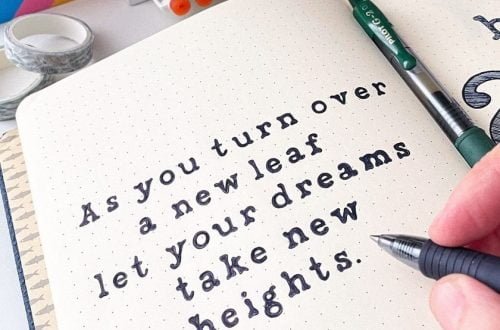 As you turn over
a new leaf
let your dreams
take new
heights.
PILOT G-2